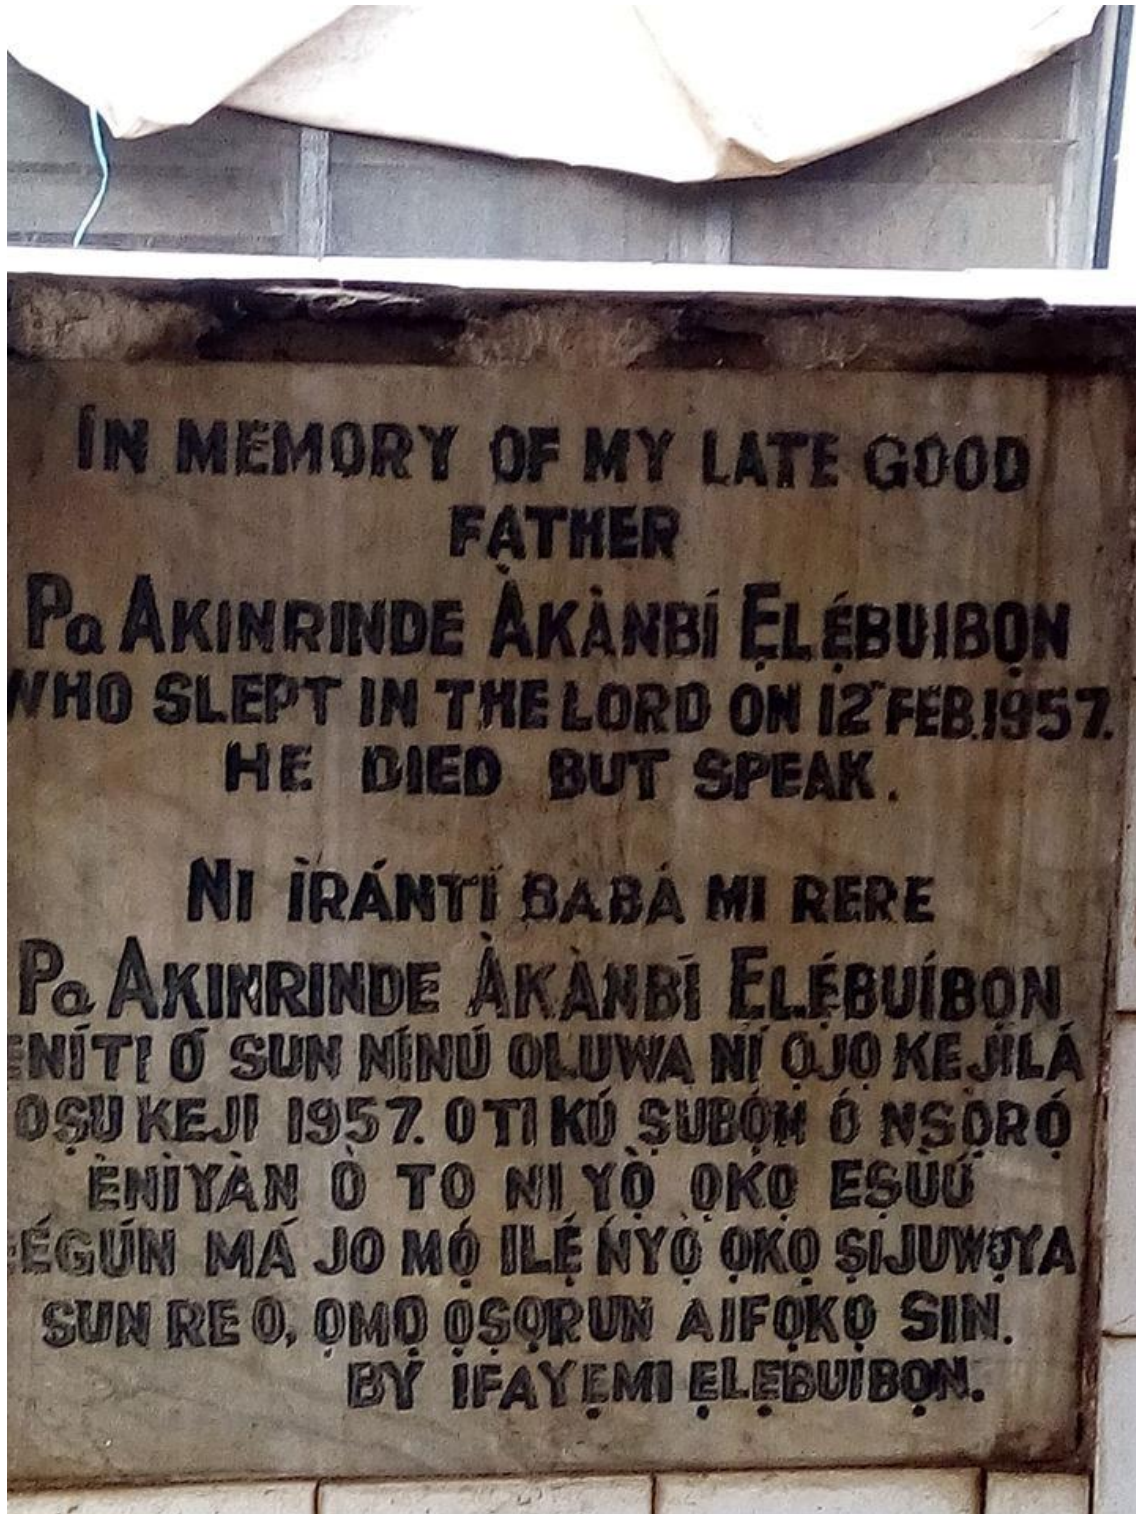 IN MEMORY OF MY LATE GOOD
FATHER
Pa AKINRINDE ÀKÀNBÍ ẸLẸ́BUIBỌN
WHO SLEPT IN THE LORD ON 12TH FEB.1957.
HE DIED BUT SPEAK.
NI ÌRÁNTÍ BABÁ MI RERE
Pa AKINRINDE ÀKÀNBÍ ELẸ́BUÍBỌN
ENÍTI Ó SUN NÍNÚ OLUWA NÍ ỌJỌ KEJÌLÁ
OṢU KEJI 1957. O TI KÚ ṢUBỌ́N Ó NSỌ̀RỌ́
ÈNÌYÀN Ò TO NI YỌ̀ ỌKỌ EṢÙÚ
EÉGÚN MÁ JO MỌ́ ILẸ́ ŃYỌ̀ ỌKỌ ṢIJUWỌYA
SUN RE O, ỌMỌ ỌṢỌRUN AIFỌKỌ SIN.
BY IFAYẸMI ẸLẸBUIBỌN.